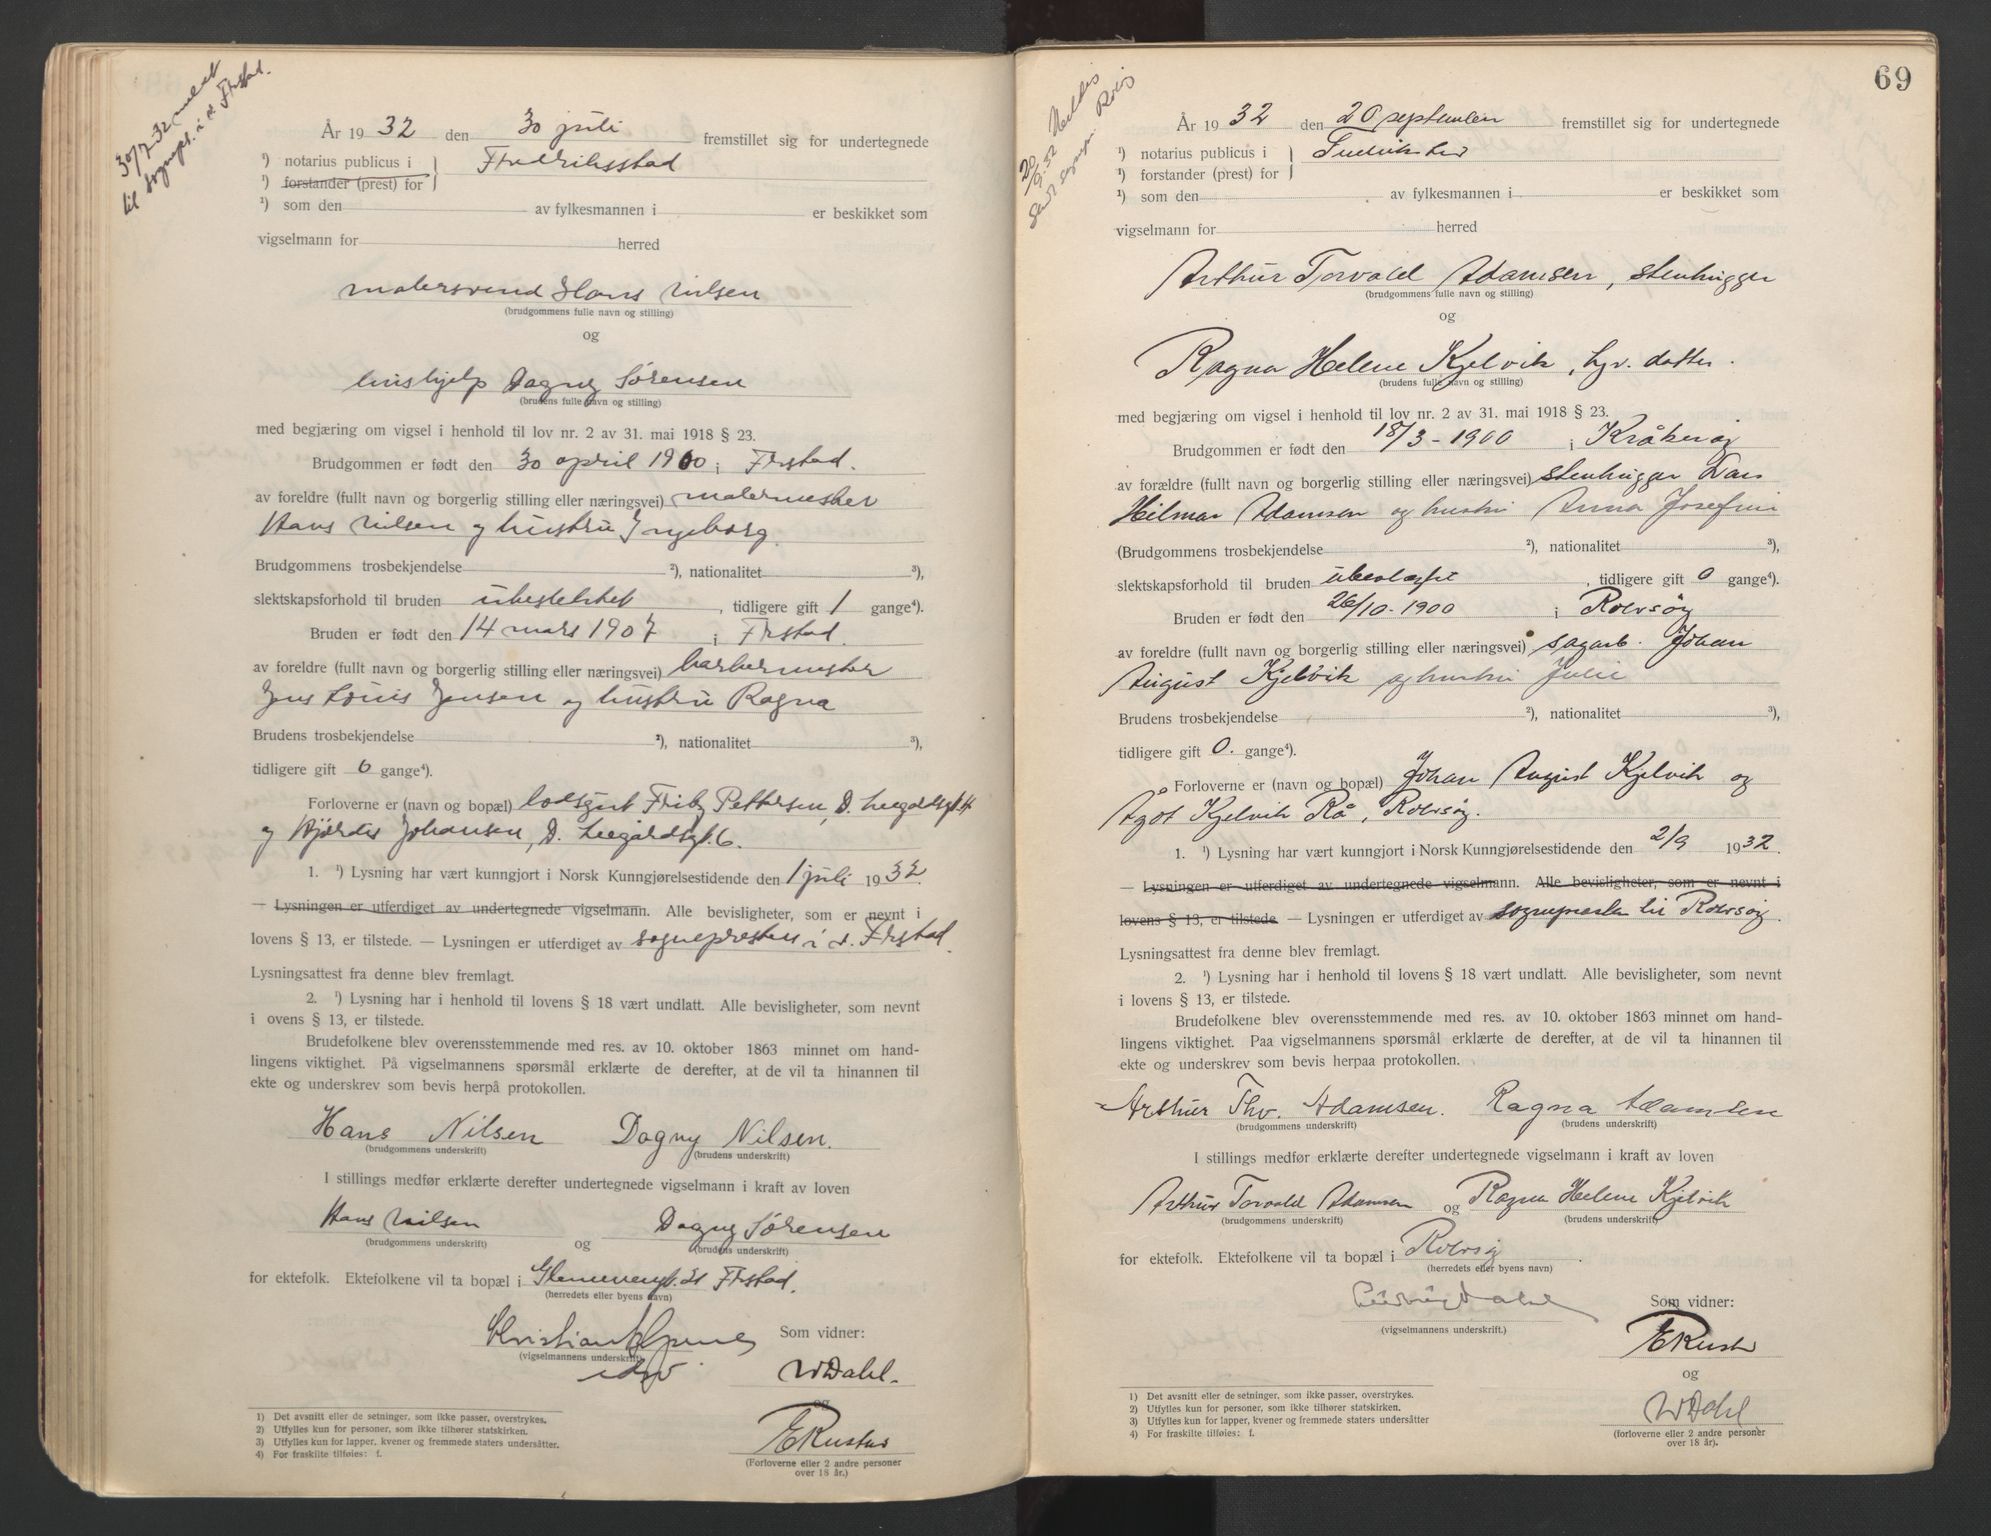 30/7-32 meldt
til sognepr. i d. Frstad.
År 1932 den 30 juli fremstillet sig for undertegnede
¹) notarius publicus i } Fredriksstad
¹) forstander (prest) for
¹) som den av fylkesmannen i er beskikket som
vigselmann for herred
malersvend Hans Nilsen
(brudgommens fulle navn og stilling)
og
hushjelp Dagny Sørensen
(brudens fulle navn og stilling)
med begjæring om vigsel i henhold til lov nr. 2 av 31. mai 1918 § 23.
Brudgommen er født den 30 april 1900 i Frstad.
av foreldre (fullt navn og borgerlig stilling eller næringsvei) malermester
Hans Nilsen og hustru Ingeborg.
Brudgommens trosbekjendelse ²), nationalitet ³),
slektskapsforhold til bruden ubeslektet, tidligere gift 1 gange⁴).
Bruden er født den 14 mars 1907 i Frstad.
av foreldre (fullt navn og borgerlig stilling eller næringsvei) barbermester
Jens Louis Jensen og hustru Ragna
Brudens trosbekjendelse ²), nationalitet ³),
tidligere gift 0 gange⁴).
Forloverne er (navn og bopæl) lodsgut Fritz Pettersen, D. Leegårdsgt.
og Hjørdis Johansen, D. Leegårdsgt. 6.
1. ¹) Lysning har vært kunngjort i Norsk Kunngjørelsestidende den 1 juli 1932.
— Lysningen er utferdiget av undertegnede vigselmann. Alle bevisligheter, som er nevnt i
lovens § 13, er tilstede. — Lysningen er utferdiget av sognepresten i d. Frstad.
Lysningsattest fra denne blev fremlagt.
2. ¹) Lysning har i henhold til lovens § 18 vært undlatt. Alle bevisligheter, som nevnt
i ovens § 13, er tilstede.
Brudefolkene blev overensstemmende med res. av 10. oktober 1863 minnet om hand-
lingens viktighet. På vigselmannens spørsmål erklærte de derefter, at de vil ta hinannen til
ekte og underskrev som bevis herpå protokollen.
Hans Nilsen Dagny Nilsen.
(brudgommens underskrift) (brudens underskrift)
I stillings medfør erklærte derefter undertegnede vigselmann i kraft av loven
Hans Nilsen og Dagny Sørensen
(brudgommens underskrift) (brudens underskrift)
for ektefolk. Ektefolkene vil ta bopæl i Glemmengt. Frstad.
(herredets eller byens navn)
Kristian
(vigselmannens underskrift)
Som vidner:
WDahl.
og
EKuster
(Forloverne eller 2 andre personer
over 18 år.)
1) Det avsnitt eller de setninger, som ikke passer, overstrykes.
2) Utfylles kun for personer, som ikke tilhører statskirken.
3) Utfylles kun for lapper, kvener og fremmede staters undersåtter.
4) For fraskilte tilføies: f.
69
20/9-32 Meldt
Sognepr. Rolvsøy
År 1932 den 20 september fremstillet sig for undertegnede
¹) notarius publicus i } Fredrikstad
¹) forstander (prest) for
¹) som den av fylkesmannen i er beskikket som
vigselmann for herred
Arthur Torvald Adamsen, stenhugger
(brudgommens fulle navn og stilling)
og
Ragna Helene Kjelvik, hjv. datter.
(brudens fulle navn og stilling)
med begjæring om vigsel i henhold til lov nr. 2 av 31. mai 1918 § 23.
Brudgommen er født den 18/3-1900 i Kråkerøy
av forældre (fullt navn og borgerlig stilling eller næringsvei) stenhugger Lars
Hilmar Adamsen og hustru Anna Josefine
(Brudgommens trosbekjendelse ²), nationalitet ³),
slektskapsforhold til bruden ubeslægtet, tidligere gift 0 gange⁴).
Bruden er født den 26/10-1900 i Rolvsøy
av foreldre (fullt navn og borgerlig stilling eller næringsvei) sagarb. Johan
August Kjelvik og hustru Julie
Brudens trosbekjendelse ²), nationalitet ³),
tidligere gift 0. gange⁴).
Forloverne er (navn og bopæl) Johan August Kjelvik og
Ågot Kjelvik Rå, Rolvsøy.
1. ¹) Lysning har vært kunngjort i Norsk Kunngjørelsestidende den 2/9 1932.
— Lysningen er utferdiget av undertegnede vigselmann. Alle bevisligheter, som er nevnt i
lovens § 13, er tilstede — Lysningen er utferdiget av sognepresten til Rolvsøy.
Lysningsattest fra denne blev fremlagt.
2. ¹) Lysning har i henhold til lovens § 18 vært undlatt. Alle bevisligheter, som nevnt
i lovens § 13, er tilstede.
Brudefolkene blev overensstemmende med res. av 10. oktober 1863 minnet om hand-
lingens viktighet. Paa vigselmannens spørsmål erklærte de derefter, at de vil ta hinannen til
ekte og underskrev som bevis herpaa protokollen.
Arthur Thv. Adamsen. Ragna Adamsen
(brudgommens underskrift) (brudens underskrift)
I stillings medfør erklærte derefter undertegnede vigselmann i kraft av loven
Arthur Torvald Adamsen og Ragna Helene Kjelvik
(brudgommens underskrift) (brudens underskrift)
for ektefolk. Ektefolkene vil ta bopæl i Rolvsøy.
(herredets eller byens navn)
Ludvig Dahl
(vigselmannens underskrift.)
Som vidner:
EKuster
og
WDahl.
(forloverne eller 2 andre personer
over 18 år).
1) Det avsnitt eller de setninger, som ikke passer, overstrykes.
2) Utfylles kun for personer, som ikke tilhører statskirken.
3) Utfylles kun for lapper, kvener og fremmede staters undersåtter
4) For fraskilte tilføies: f.